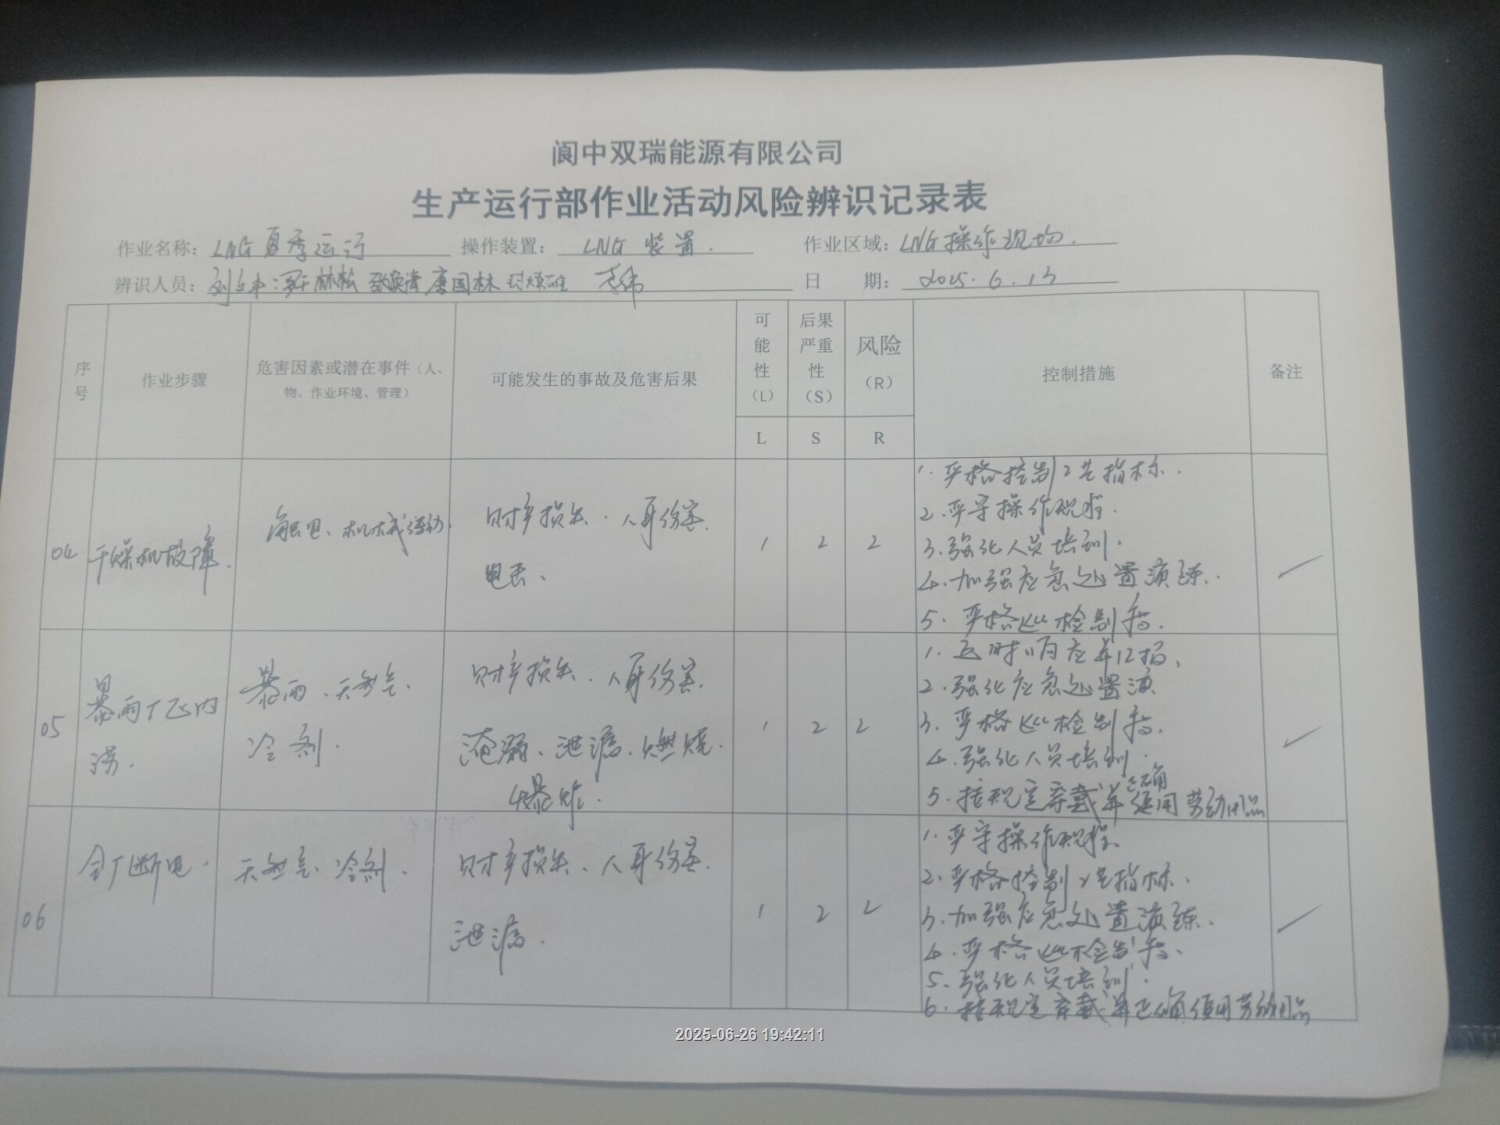 阆中双瑞能源有限公司
生产运行部作业活动风险辨识记录表
作业名称：LNG夏季运行 操作装置：LNG 装置. 作业区域：LNG操作现场.
辨识人员： 林松 唐国林 日 期：2025.6.13
序号 作业步骤 危害因素或潜在事件（人、物、作业环境、管理） 可能发生的事故及危害后果 可能性（L） 后果严重性（S） 风险（R） 控制措施 备注
L S R
04 干燥机故障. 触电、机械传动. 财产损失.人身伤害. 电击、 1 2 2
1.严格控制工艺指标.
2.严守操作规程.
3.强化人员培训.
4.加强应急处置演练.
5.严格巡检制度.
05 暴雨厂区内涝. 暴雨.天然气.冷剂. 财产损失.人身伤害. 淹溺、泄漏.燃烧.爆炸. 1 2 2
1.及时
2.强化应急处置演
3.严格巡检制度.
4.强化人员培训.
5.按规定穿戴并正确使用劳动用品
06 全厂断电. 天然气.冷剂. 财产损失、人身伤害. 泄漏. 1 2 2
1.严守操作规程.
2.严格控制工艺指标.
3.加强应急处置演练.
4.严格巡检制度.
5.强化人员培训.
6.按规定穿戴并正确使用劳动用品
2025-06-26 19:42:11